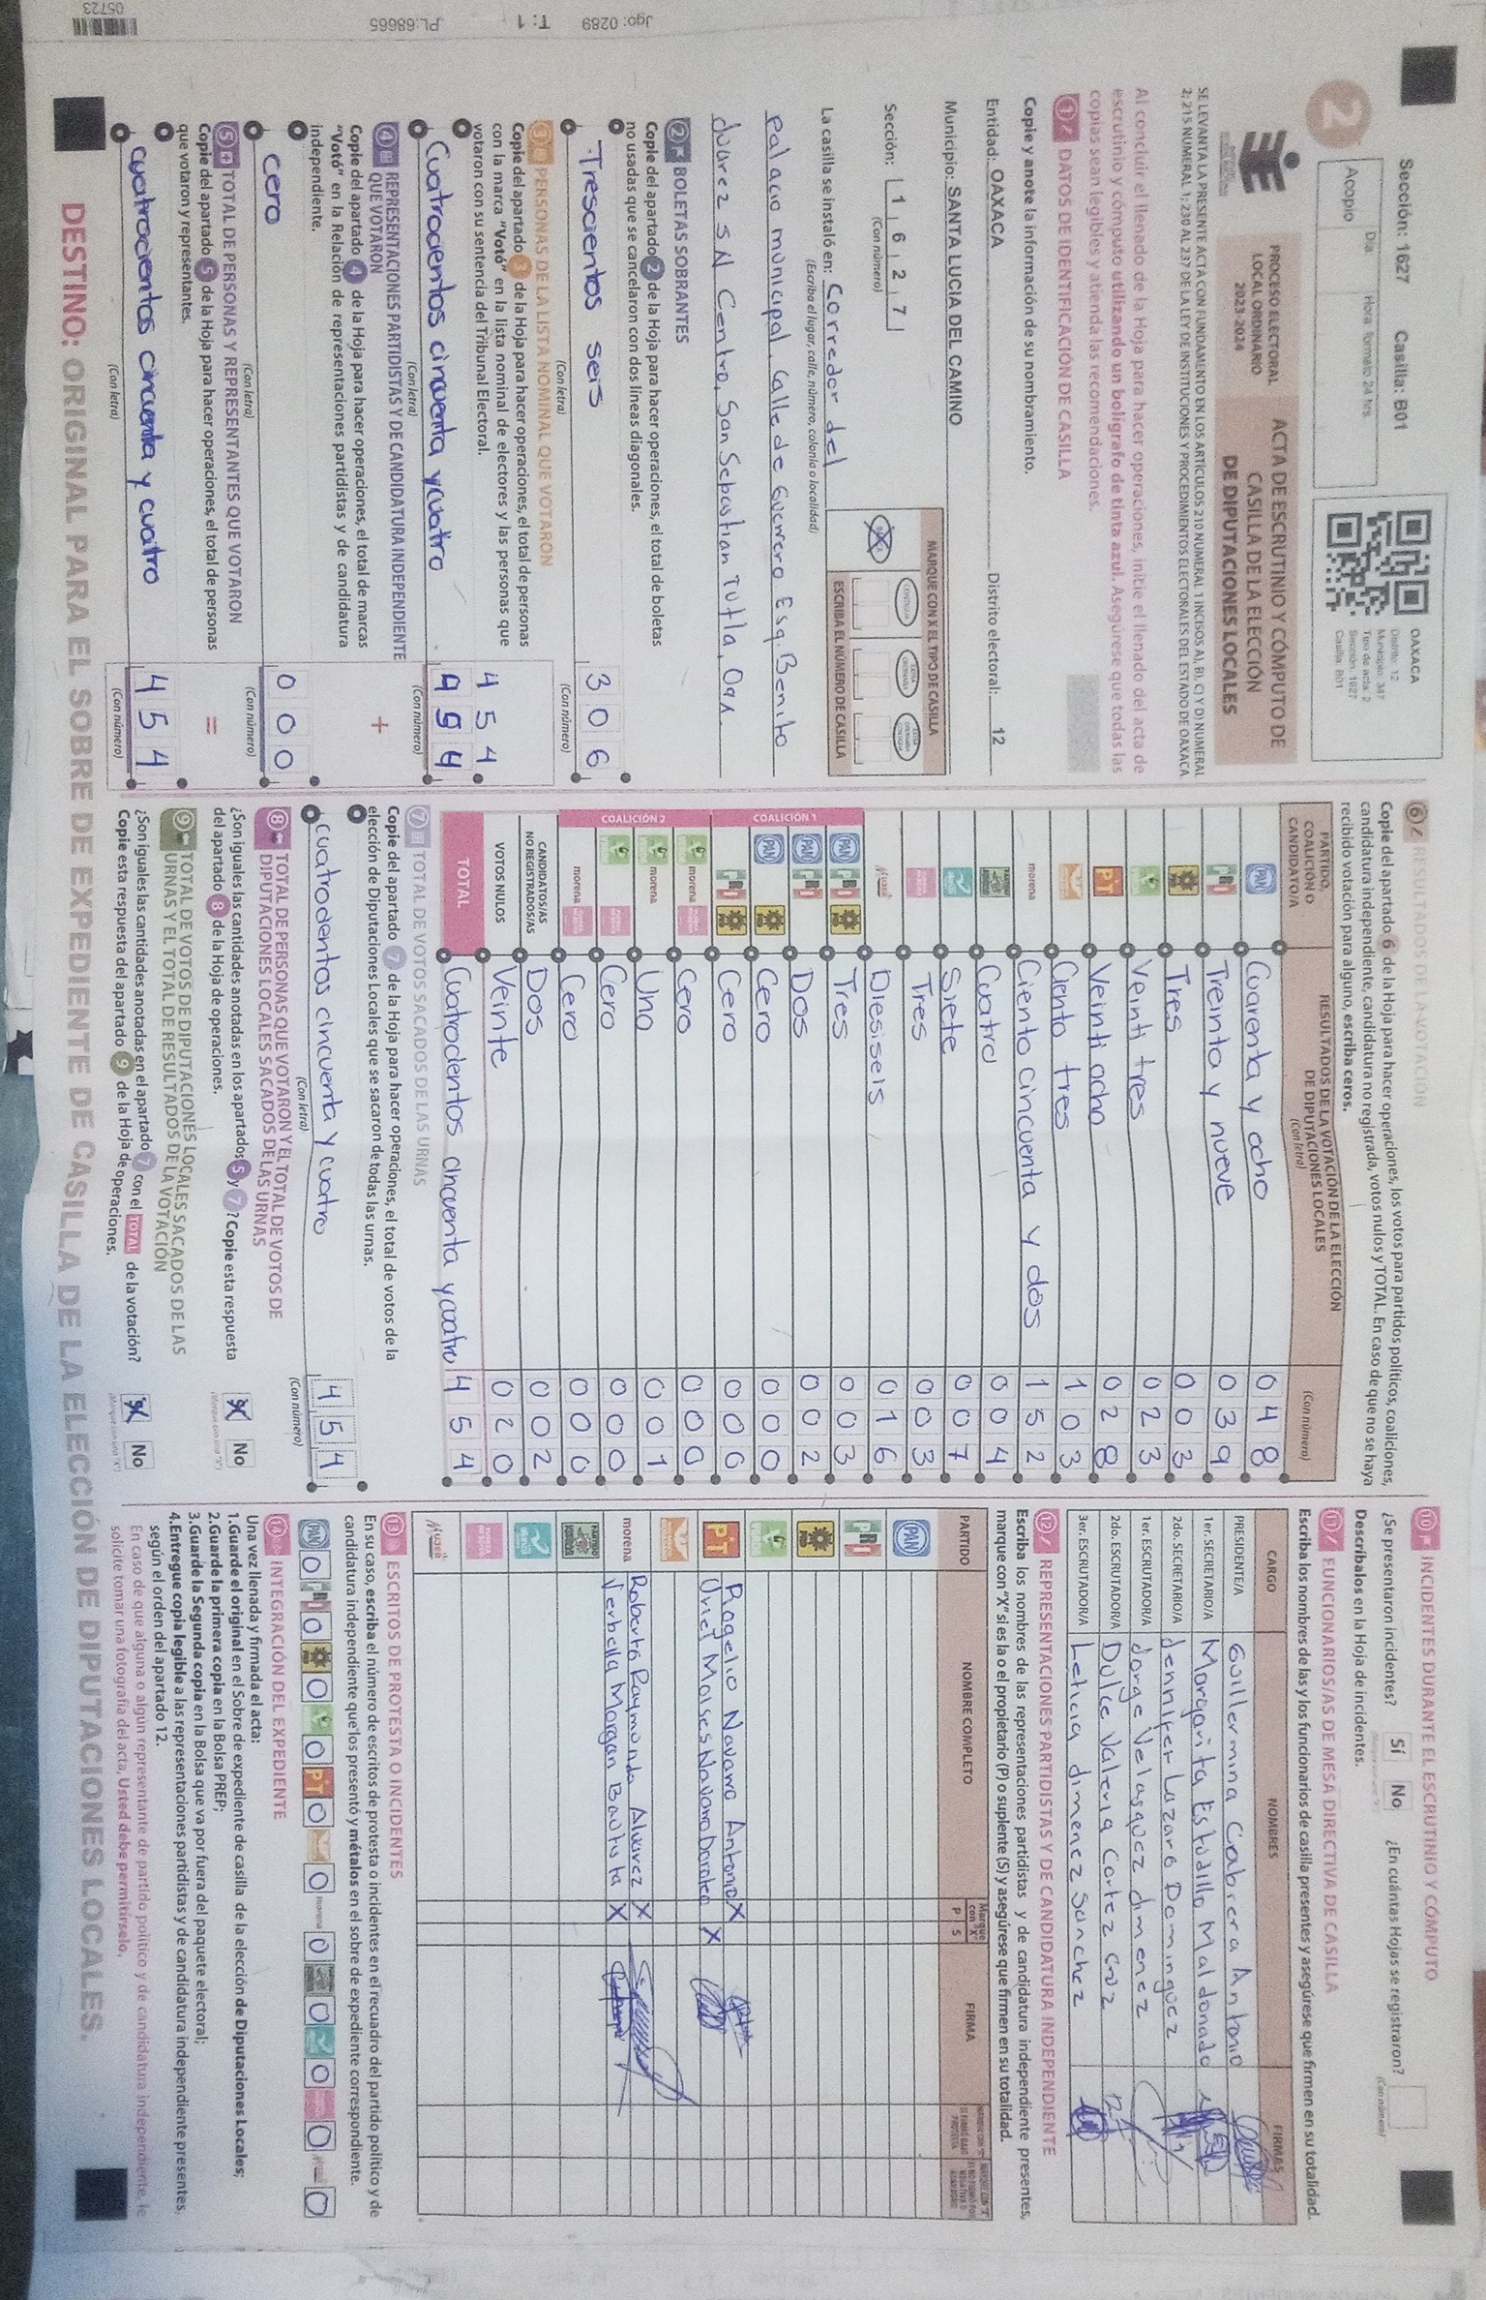 Sección: 1627 Casilla: B01
Día Hora formato 24 hrs.
Acopio
OAXACA
Distrito: 12
Municipio: 347
Tipo de acta: 2
Sección: 1627
Casilla: B01
2
PROCESO ELECTORAL
LOCAL ORDINARIO
2023-2024
ACTA DE ESCRUTINIO Y CÓMPUTO DE
CASILLA DE LA ELECCIÓN
DE DIPUTACIONES LOCALES
SE LEVANTA LA PRESENTE ACTA CON FUNDAMENTO EN LOS ARTÍCULOS 210 NUMERAL 1 INCISOS A), B), C) Y D) NUMERAL
2; 215 NUMERAL 1; 230 AL 237 DE LA LEY DE INSTITUCIONES Y PROCEDIMIENTOS ELECTORALES DEL ESTADO DE OAXACA
Al concluir el llenado de la Hoja para hacer operaciones, inicie el llenado del acta de
escrutinio y cómputo utilizando un bolígrafo de tinta azul. Asegúrese que todas las
copias sean legibles y atienda las recomendaciones.
1 DATOS DE IDENTIFICACIÓN DE CASILLA
Copie y anote la información de su nombramiento.
Entidad: OAXACA Distrito electoral: 12
Municipio: SANTA LUCIA DEL CAMINO
Sección: 1 6 2 7
(Con número)
MARQUE CON X EL TIPO DE CASILLA
ESCRIBA EL NÚMERO DE CASILLA
La casilla se instaló en: Corredor del
(Escriba el lugar, calle, número, colonia o localidad)
palacio municipal, Calle de Guerrero Esq. Benito
Juarez SN Centro, San Sebastian Tutla, Oax.
2 BOLETAS SOBRANTES
Copie del apartado 2 de la Hoja para hacer operaciones, el total de boletas
no usadas que se cancelaron con dos líneas diagonales.
Trescientos seis 3 0 6
(Con letra) (Con número)
3 PERSONAS DE LA LISTA NOMINAL QUE VOTARON
Copie del apartado 3 de la Hoja para hacer operaciones, el total de personas
con la marca "Votó" en la lista nominal de electores y las personas que
votaron con su sentencia del Tribunal Electoral.
4 5 4
Cuatrocientos cincuenta y cuatro
(Con letra) (Con número)
4 REPRESENTACIONES PARTIDISTAS Y DE CANDIDATURA INDEPENDIENTE
QUE VOTARON
Copie del apartado 4 de la Hoja para hacer operaciones, el total de marcas
"Votó" en la Relación de representaciones partidistas y de candidatura
independiente.
+
cero 0 0 0
(Con letra) (Con número)
5 TOTAL DE PERSONAS Y REPRESENTANTES QUE VOTARON
Copie del apartado 5 de la Hoja para hacer operaciones, el total de personas
que votaron y representantes.
=
cuatrocientos cincuenta y cuatro 4 5 4
(Con letra) (Con número)
6 RESULTADOS DE LA VOTACIÓN
Copie del apartado 6 de la Hoja para hacer operaciones, los votos para partidos políticos, coaliciones,
candidatura independiente, candidatura no registrada, votos nulos y TOTAL. En caso de que no se haya
recibido votación para alguno, escriba ceros.
PARTIDO,
COALICIÓN O
CANDIDATO/A
RESULTADOS DE LA VOTACIÓN DE LA ELECCIÓN
DE DIPUTACIONES LOCALES
(Con letra) (Con número)
PAN Cuarenta y ocho 0 4 8
PRI Treinta y nueve 0 3 9
PRD Tres 0 0 3
Veinti tres 0 2 3
PT Veinti ocho 0 2 8
Ciento tres 1 0 3
morena Ciento cincuenta y dos 1 5 2
Cuatro 0 0 4
Siete 0 0 7
Tres 0 0 3
Diesiseis 0 1 6
COALICIÓN 1
PAN PRI PRD Tres 0 0 3
PAN PRI Dos 0 0 2
PAN PRD Cero 0 0 0
PRI PRD Cero 0 0 0
COALICIÓN 2
morena Cero 0 0 0
morena Uno 0 0 1
Cero 0 0 0
morena Cero 0 0 0
CANDIDATOS/AS
NO REGISTRADOS/AS Dos 0 0 2
VOTOS NULOS Veinte 0 2 0
TOTAL Cuatrocientos cincuenta y cuatro 4 5 4
7 TOTAL DE VOTOS SACADOS DE LAS URNAS
Copie del apartado 7 de la Hoja para hacer operaciones, el total de votos de la
elección de Diputaciones Locales que se sacaron de todas las urnas.
cuatrocientos cincuenta y cuatro 4 5 4
(Con letra) (Con número)
8 TOTAL DE PERSONAS QUE VOTARON Y EL TOTAL DE VOTOS DE
DIPUTACIONES LOCALES SACADOS DE LAS URNAS
¿Son iguales las cantidades anotadas en los apartados 5 y 7? Copie esta respuesta
del apartado 8 de la Hoja de operaciones.
No
9 TOTAL DE VOTOS DE DIPUTACIONES LOCALES SACADOS DE LAS
URNAS Y EL TOTAL DE RESULTADOS DE LA VOTACIÓN
¿Son iguales las cantidades anotadas en el apartado 7 con el TOTAL de la votación?
Copie esta respuesta del apartado 9 de la Hoja de operaciones.
No
10 INCIDENTES DURANTE EL ESCRUTINIO Y CÓMPUTO
¿Se presentaron incidentes? Sí No ¿En cuántas Hojas se registraron?
(Con número)
Descríbalos en la Hoja de incidentes.
11 FUNCIONARIOS/AS DE MESA DIRECTIVA DE CASILLA
Escriba los nombres de las y los funcionarios de casilla presentes y asegúrese que firmen en su totalidad.
CARGO NOMBRES FIRMAS
PRESIDENTE/A Guillermina Cabrera Antonio
1er. SECRETARIO/A Margarita Estudillo Maldonado
2do. SECRETARIO/A Jennifer Lazaro Dominguez
1er. ESCRUTADOR/A Jorge Velasquez Jimenez
2do. ESCRUTADOR/A Dulce Valeria Cortez Cruz
3er. ESCRUTADOR/A Leticia Jimenez Sanchez
12 REPRESENTACIONES PARTIDISTAS Y DE CANDIDATURA INDEPENDIENTE
Escriba los nombres de las representaciones partidistas y de candidatura independiente presentes,
marque con "X" si es la o el propietario (P) o suplente (S) y asegúrese que firmen en su totalidad.
PARTIDO NOMBRE COMPLETO Marque con "X" P S FIRMA
PAN
PRI
PRD
PT Rogelio Navarro Antonio X
Uriel Moises Navarro Doroteo X
morena Roberto Raymundo Alvarez X
Morgan Bautista X
13 ESCRITOS DE PROTESTA O INCIDENTES
En su caso, escriba el número de escritos de protesta o incidentes en el recuadro del partido político y de
candidatura independiente que los presentó y métalos en el sobre de expediente correspondiente.
PAN 0 PRI 0 PRD 0 0 PT 0 0 morena 0 0 0 0 0
14 INTEGRACIÓN DEL EXPEDIENTE
Una vez llenada y firmada el acta:
1.Guarde el original en el Sobre de expediente de casilla de la elección de Diputaciones Locales;
2.Guarde la primera copia en la Bolsa PREP;
3.Guarde la Segunda copia en la Bolsa que va por fuera del paquete electoral;
4.Entregue copia legible a las representaciones partidistas y de candidatura independiente presentes,
según el orden del apartado 12.
En caso de que alguna o algún representante de partido político y de candidatura independiente, le
solicite tomar una fotografía del acta, Usted debe permitírselo.
DESTINO: ORIGINAL PARA EL SOBRE DE EXPEDIENTE DE CASILLA DE LA ELECCIÓN DE DIPUTACIONES LOCALES.
Jgo: 0289 T: 1 PL:68665
05723